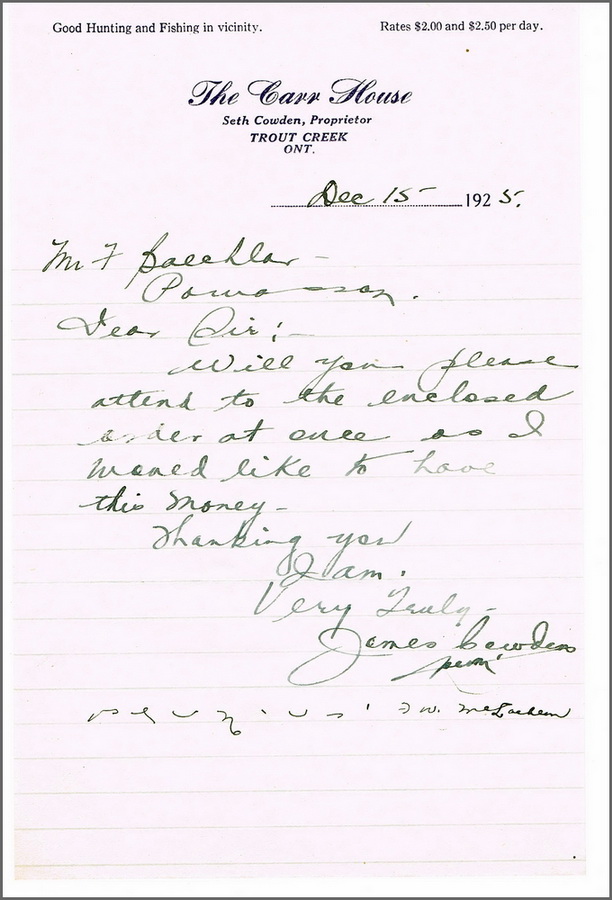 Good Hunting and Fishing in vicinity. Rates $2.00 and $2.50 per day.
The Carr House
Seth Cowden, Proprietor
TROUT CREEK
ONT.
Dec 15 1925.
Mr F Baechlar -
Powassan.
Dear Sir! -
Will you please
attend to the enclosed
order at once as I
would like to have
this money -
Thanking you
I am.
Very Truly -
James Cowden
F W. McEachern